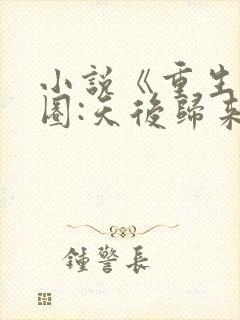 小說《重生
圈:天後歸來
鍾警長